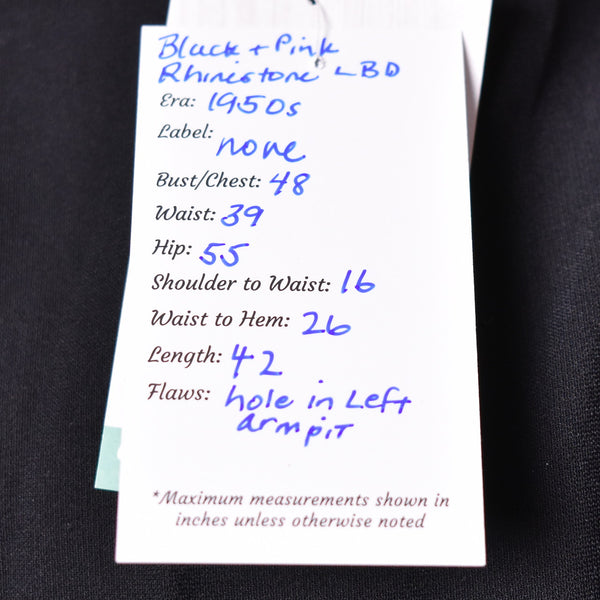 Black + Pink
Rhinestone LBD
Era: 1950s
Label: none
Bust/Chest: 48
Waist: 39
Hip: 55
Shoulder to Waist: 16
Waist to Hem: 26
Length: 42
Flaws: hole in Left
armpit
*Maximum measurements shown in
inches unless otherwise noted